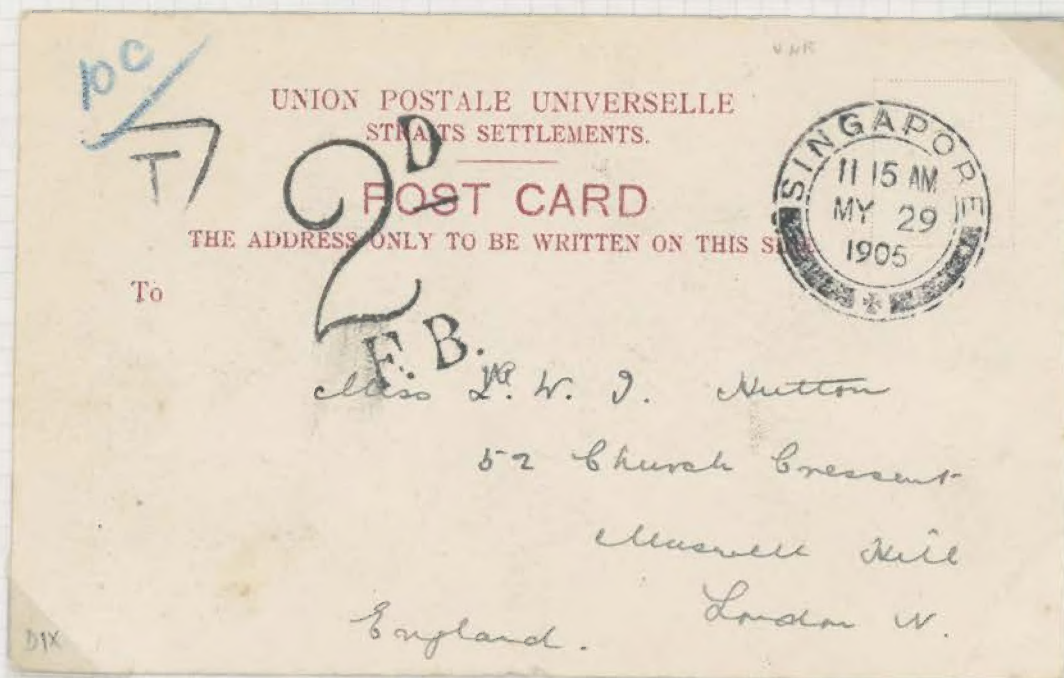 10c
T
UNION POSTALE UNIVERSELLE
STRAITS SETTLEMENTS.
POST CARD
THE ADDRESS ONLY TO BE WRITTEN ON THIS SIDE
To
2D
F.B.
SINGAPORE
11 15 AM
MY 29
1905
Miss L. W. J. Hutton
52 Church Cressent
Muswell Hill
London N.
England.
D1X